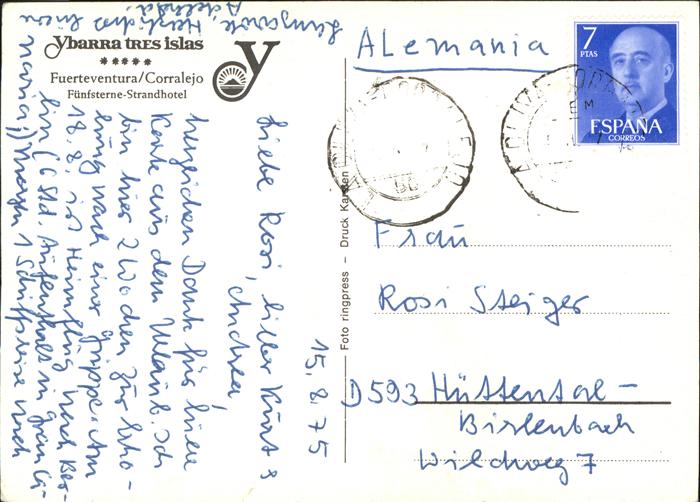 Ybarra tres islas
Fuerteventura/Corralejo
Fünfsterne-Strandhotel
Y
15.8.75
Liebe Rosi, lieber Kurt &
Andrea,
herzlichen Dank für Eure
Karte aus dem Urlaub. Ich
bin hier 2 Wochen zur Erho-
lung nach einer Grippe. Am
18.8. ist Heimflug nach Ber-
lin (6 Std. Aufenthalt in Gran Ca-
naria!) Morgen 1 Schiffsreise nach
Lanzarote. Herzlichst Eure
Foto ringpress – Druck Karsten
Alemania
7
PTAS
ESPAÑA
CORREOS
Frau
Rosi Steiger
D593 Hüttental-
Birlenbach
Wildweg 7